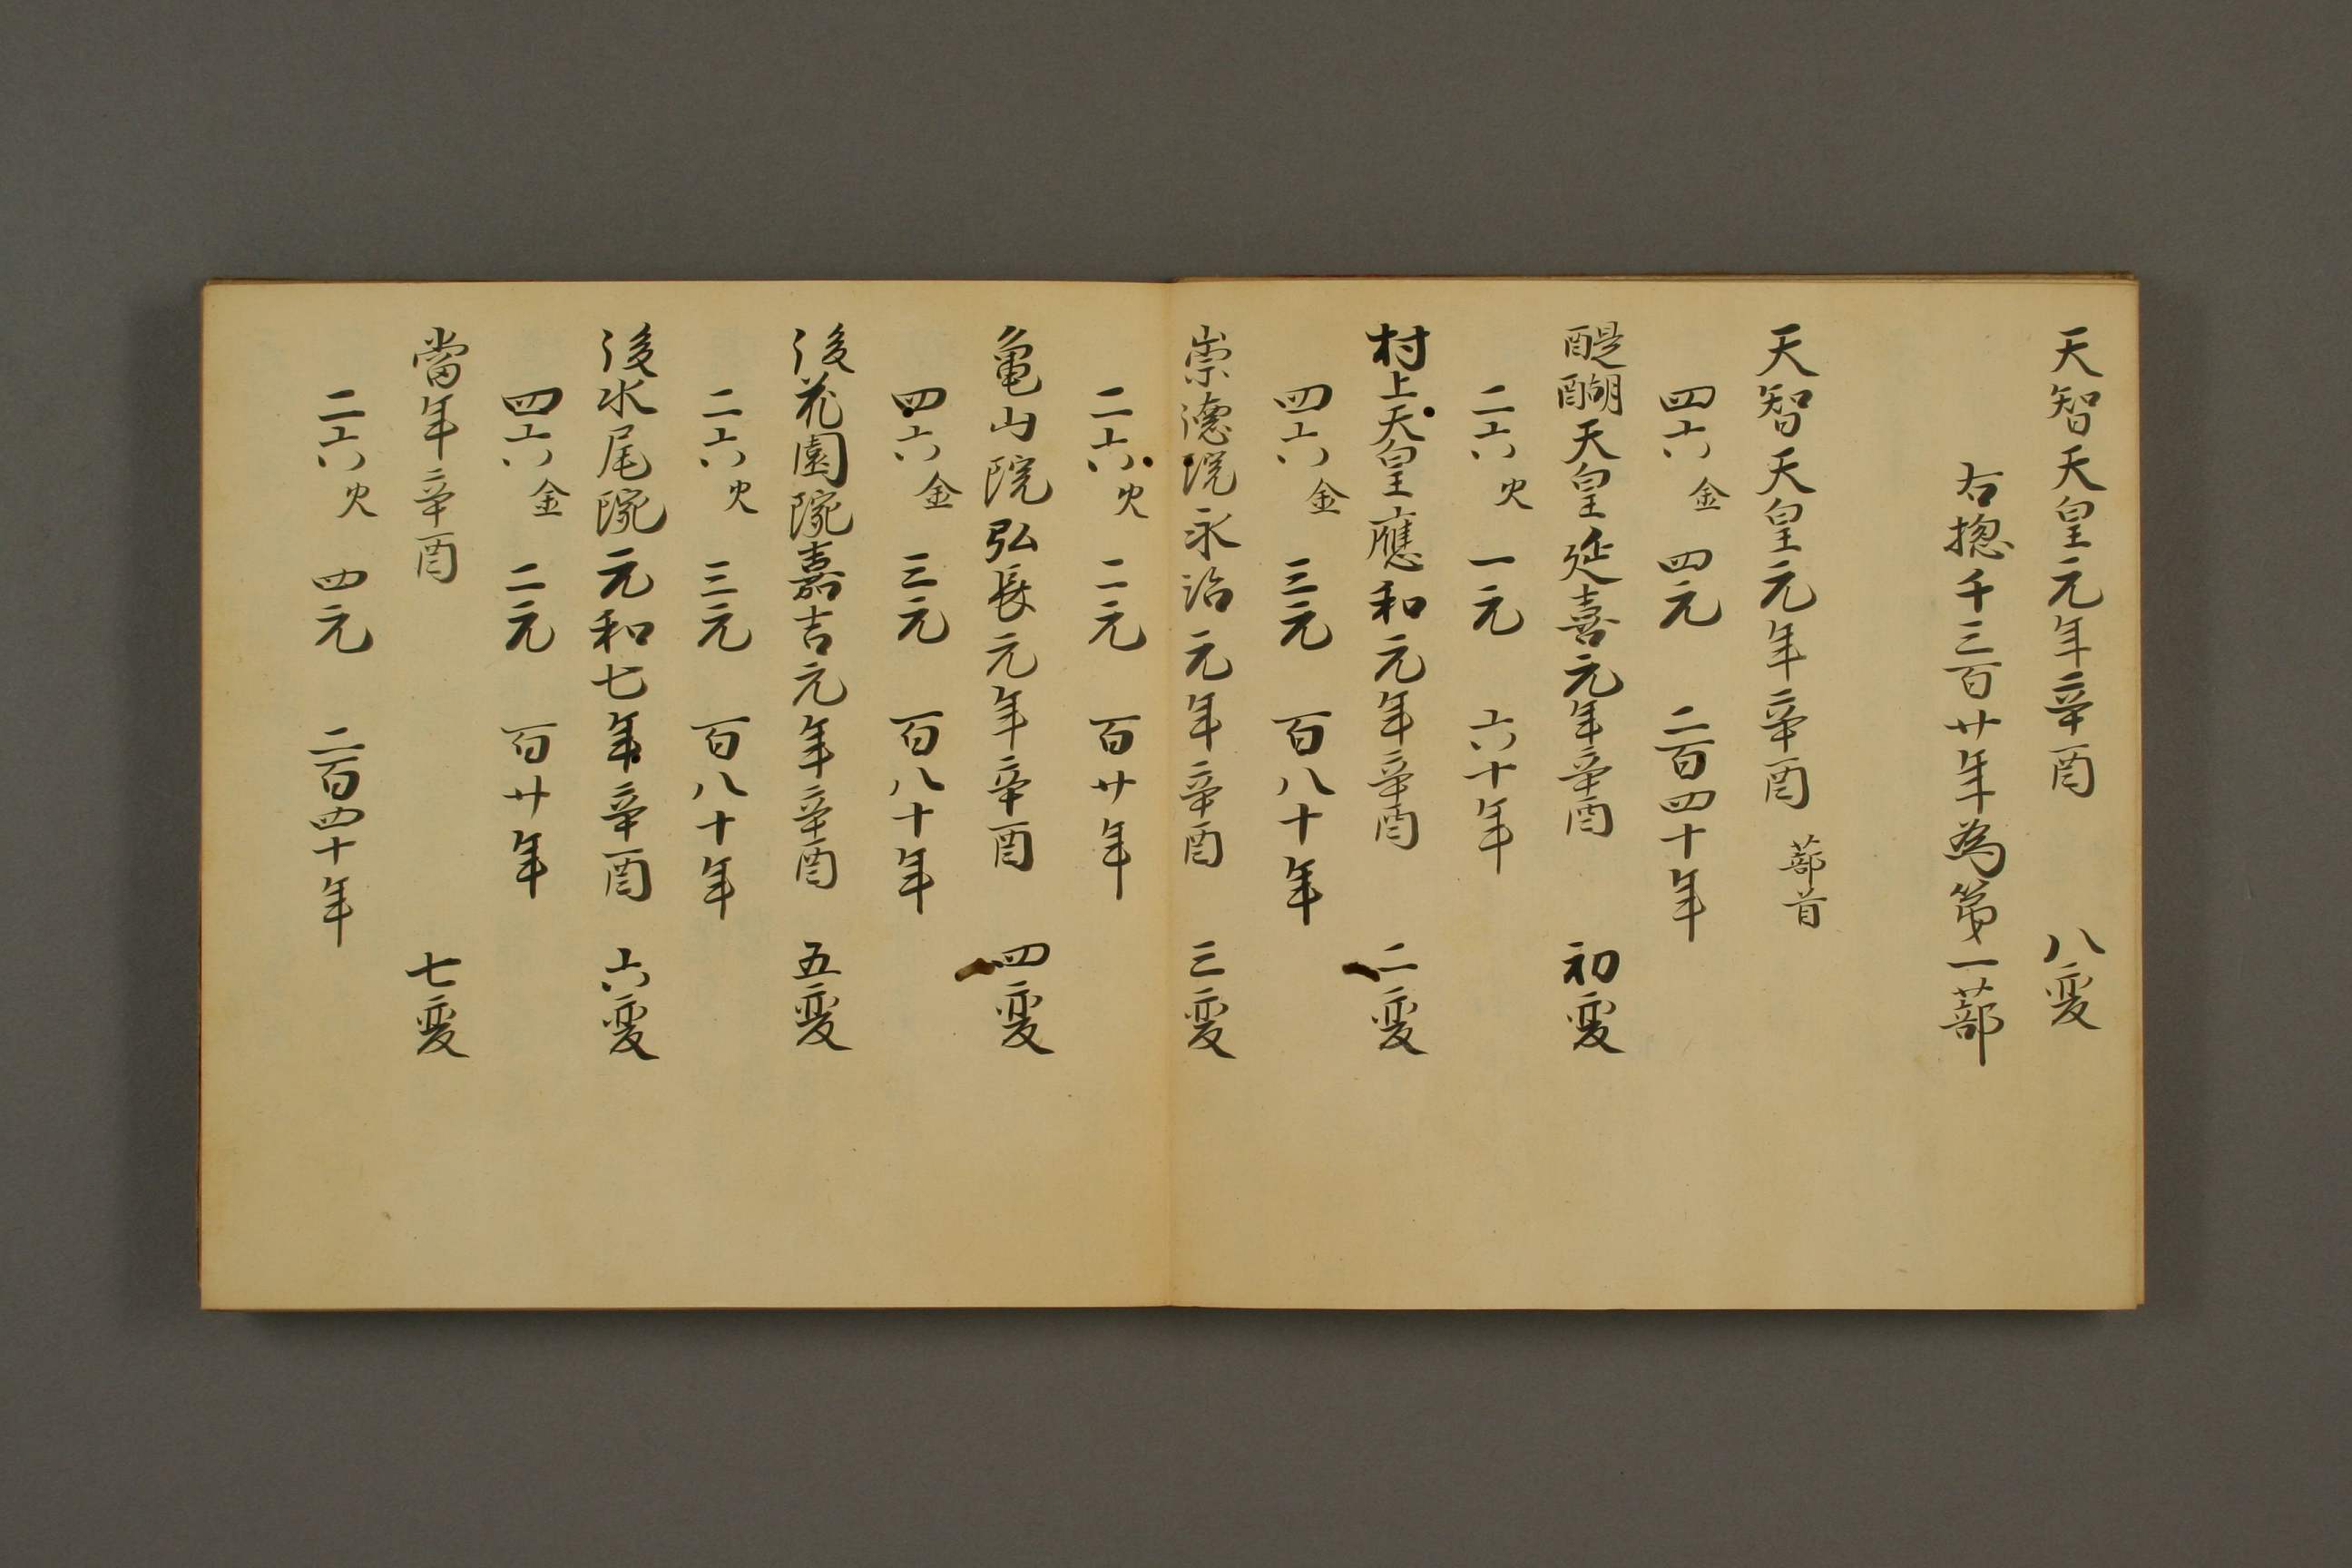 天智天皇元年辛酉　八変
右揔千三百廿年為第一蔀
天智天皇元年辛酉　蔀首
四六金　四元　二百四十年
醍醐天皇延喜元年辛酉　初変
二六火　一元　六十年
村上天皇應和元年辛酉　二変
四六金　三元　百八十年
崇徳院永治元年辛酉　三変
二六火　二元　百廿年
亀山院弘長元年辛酉　四変
四六金　三元　百八十年
後花園院嘉吉元年辛酉　五変
二六火　三元　百八十年
後水尾院元和七年辛酉　六変
四六金　二元　百廿年
當年辛酉　七変
二六火　四元　二百四十年